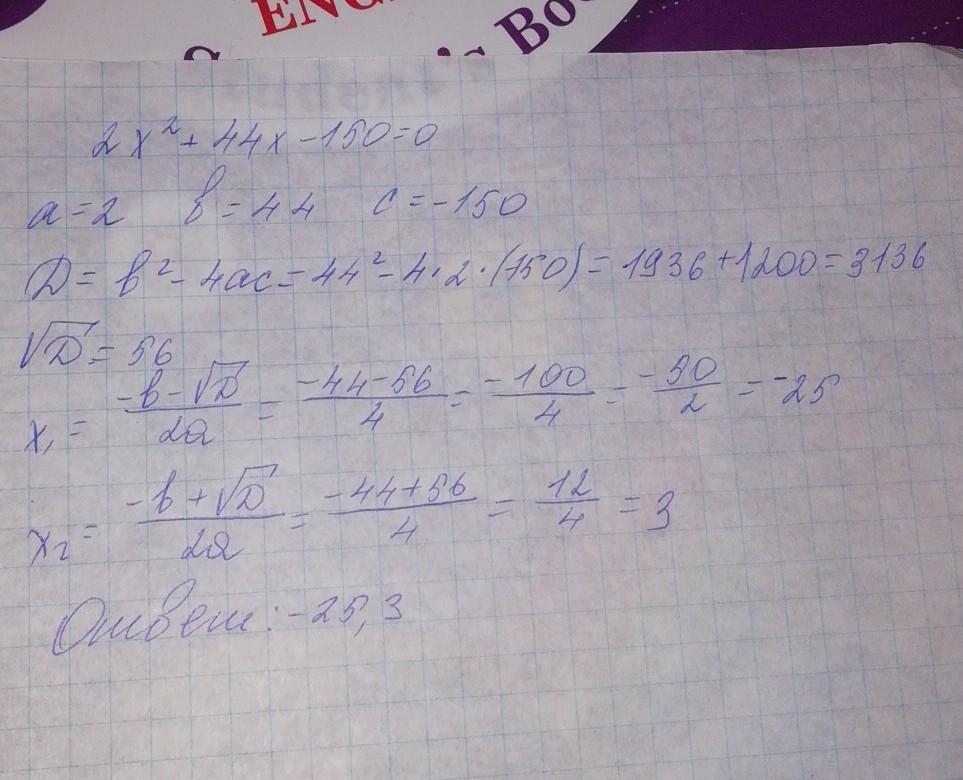 ENG
's Boo
2x² + 44x - 150 = 0
a = 2 b = 44 c = -150
D = b² - 4ac = 44² - 4·2·(150) = 1936 + 1200 = 3136
√D = 56
x₁ = (-b - √D)/2a = (-44 - 56)/4 = -100/4 = -50/2 = -25
x₂ = (-b + √D)/2a = (-44 + 56)/4 = 12/4 = 3
Ответ: -25, 3